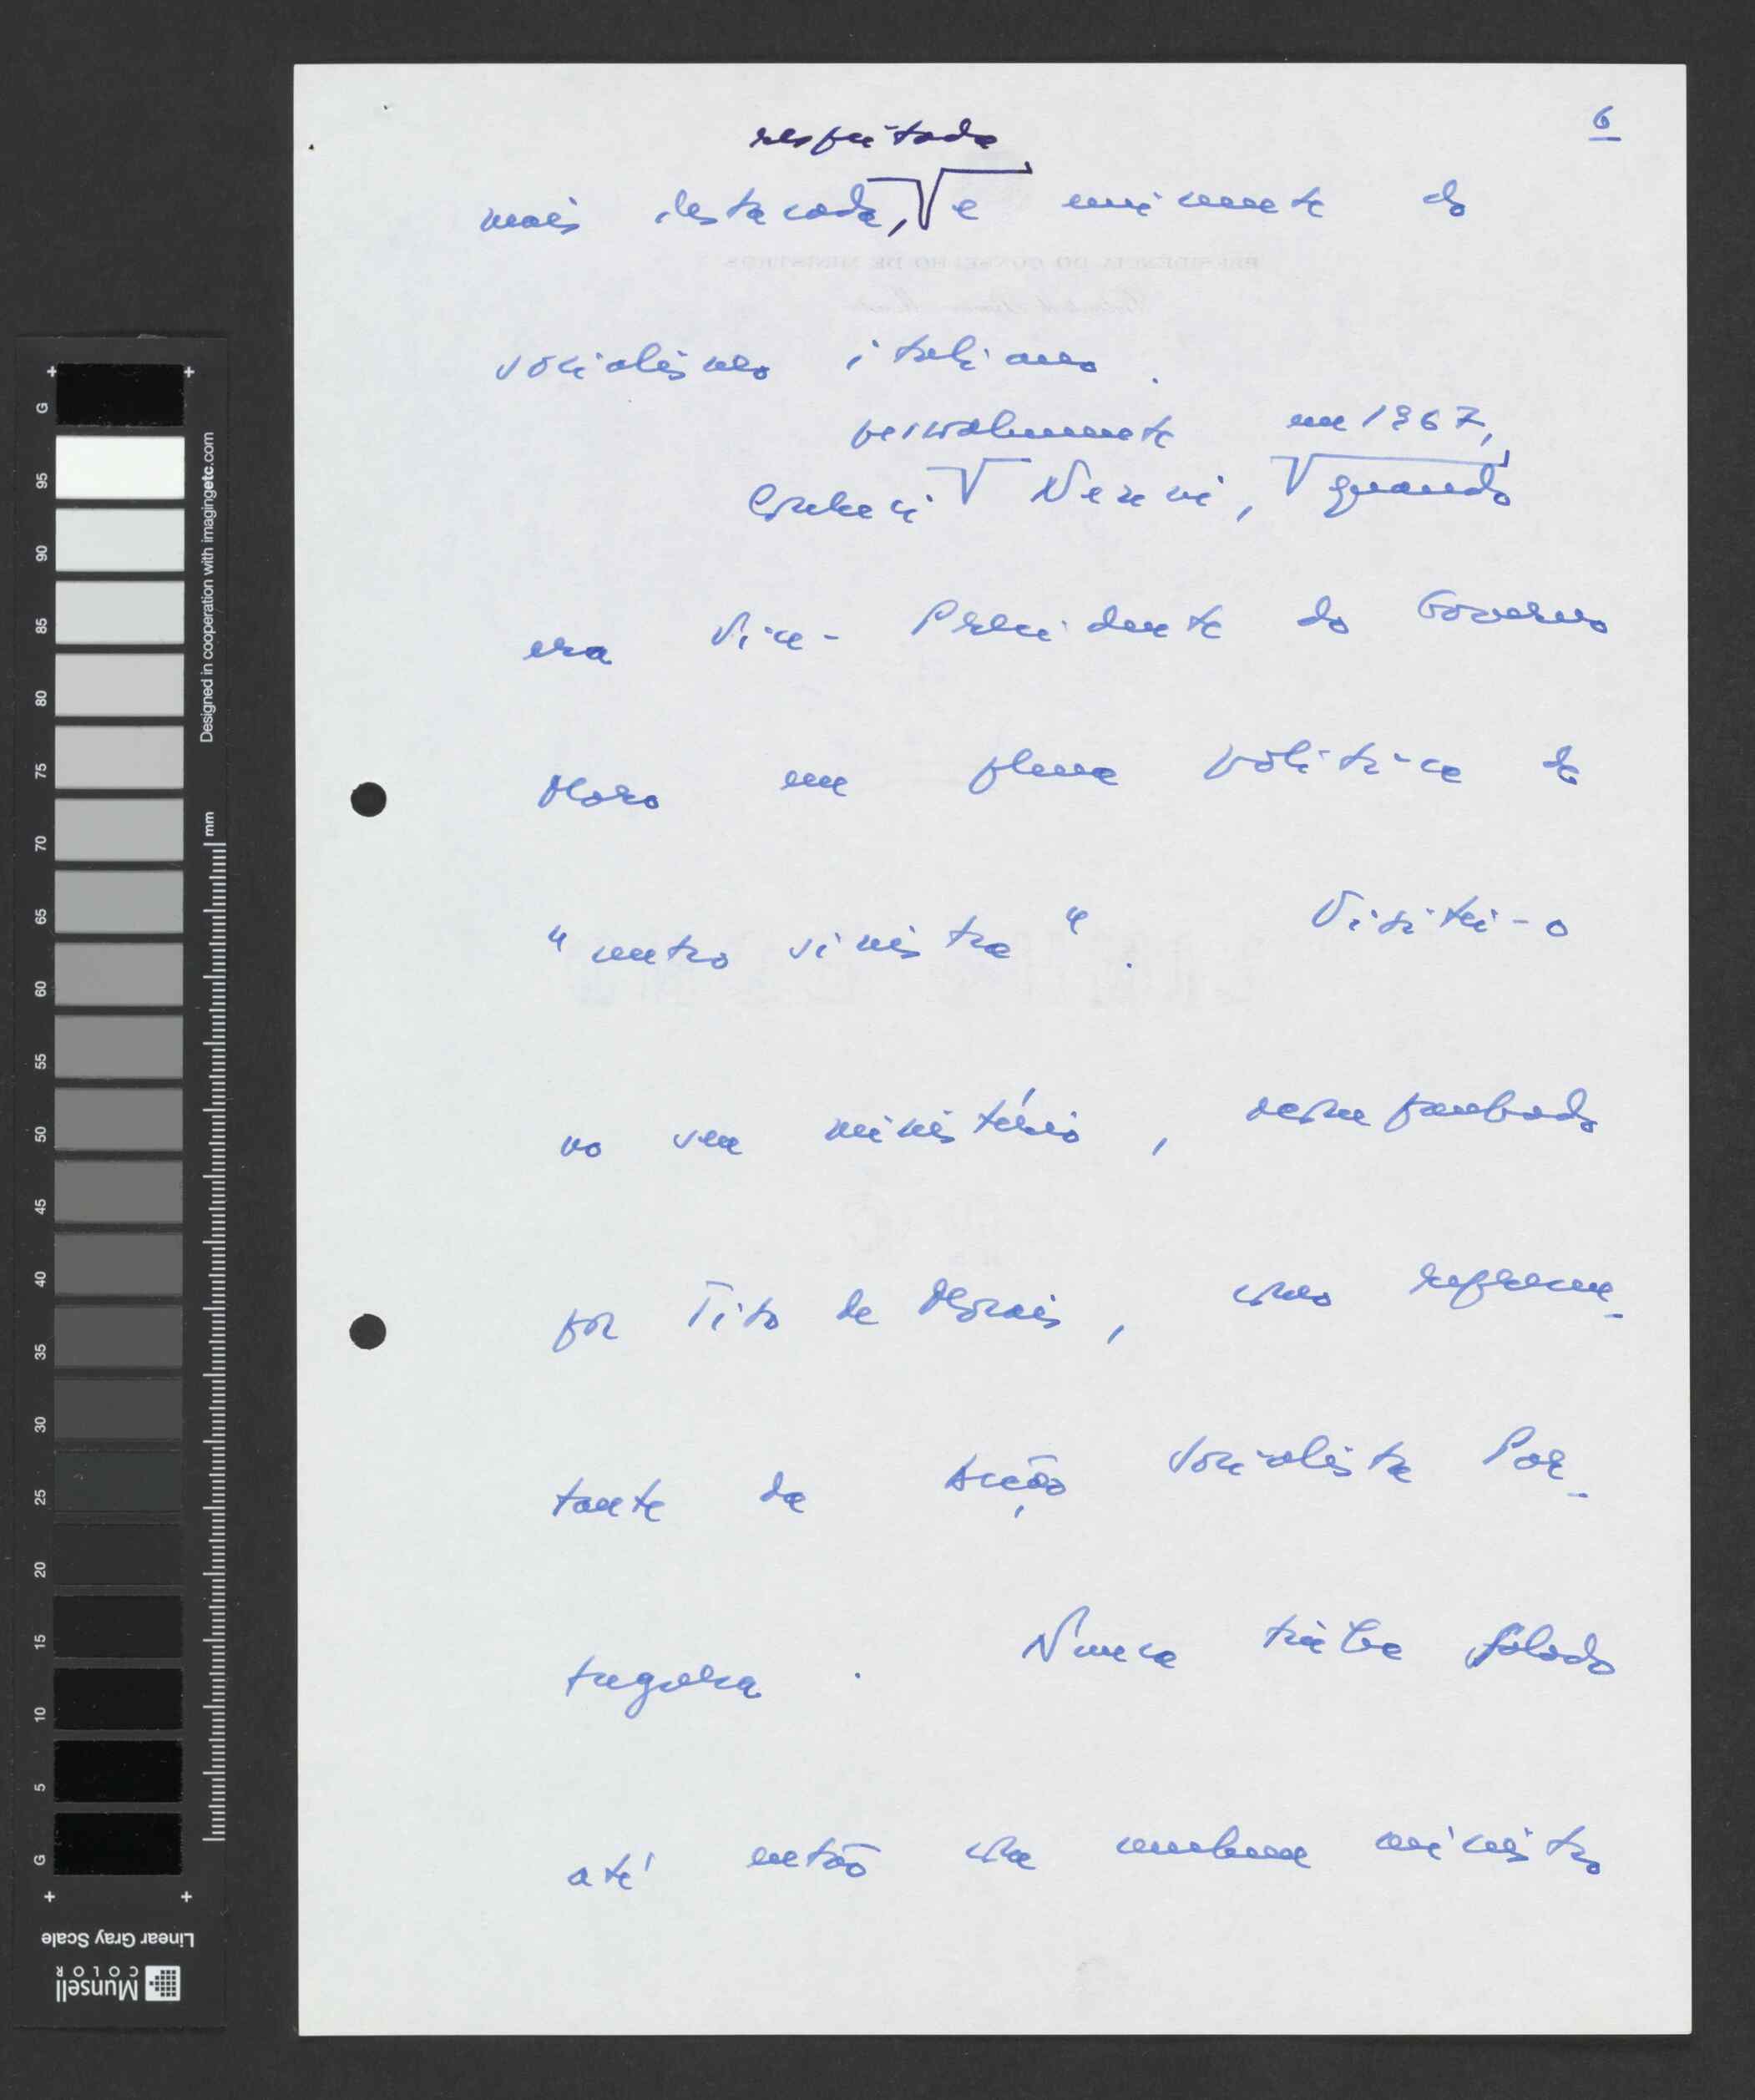 6
respeitada
mais destacada, e eminente do
socialismo italiano.
pessoalmente em 1967,
Conheci Nenni, quando
era Vice-Presidente do Governo
Moro em plena política de
"centro sinistra". Visitei-o
no seu ministério, acompanhado
por Tito de Morais, como represen-
tante da Acção Socialista Por-
tuguesa. Nunca tinha falado
até então com nenhum ministro
PRESIDÊNCIA DO CONSELHO DE MINISTROS
G 95 90 85 80 75 70 65 60 55 50 45 40 35 30 25 20 15 10 5 G
Designed in cooperation with imagingetc.com
mm
Linear Gray Scale
Munsell
COLOR